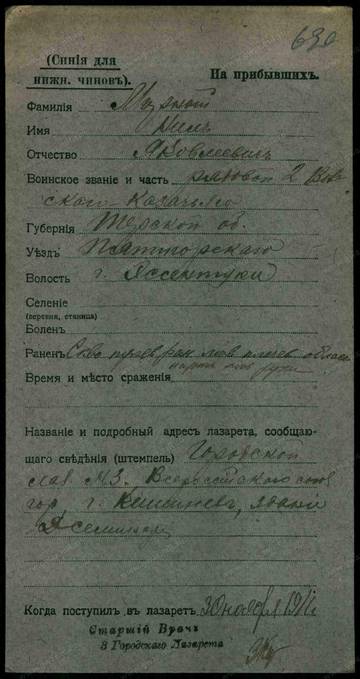 630
(Синія для нижн. чиновъ).
На прибывшихъ.
Фамилія
Имя Нилъ
Отчество Яковлевичъ
Воинское званіе и часть рядовой 2
скаго Казачьяго
Губернія Терской об.
Уѣздъ Пятигорскаго
Волость г. Ессентуки
Селеніе
(деревня, станица)
Боленъ
Раненъ Скв. пулев. ран. лев. плечев. облас.
лев. руки
Время и мѣсто сраженія
Названіе и подробный адресъ лазарета, сообщаю-
щаго свѣдѣнія (штемпель) Городской
лаз. №3. Всероссійскаго союз.
гор. г. Кишиневъ, зданіе
Когда поступилъ въ лазаретъ 30 ноября 191
Старшій Врачъ
3 Городского Лазарета